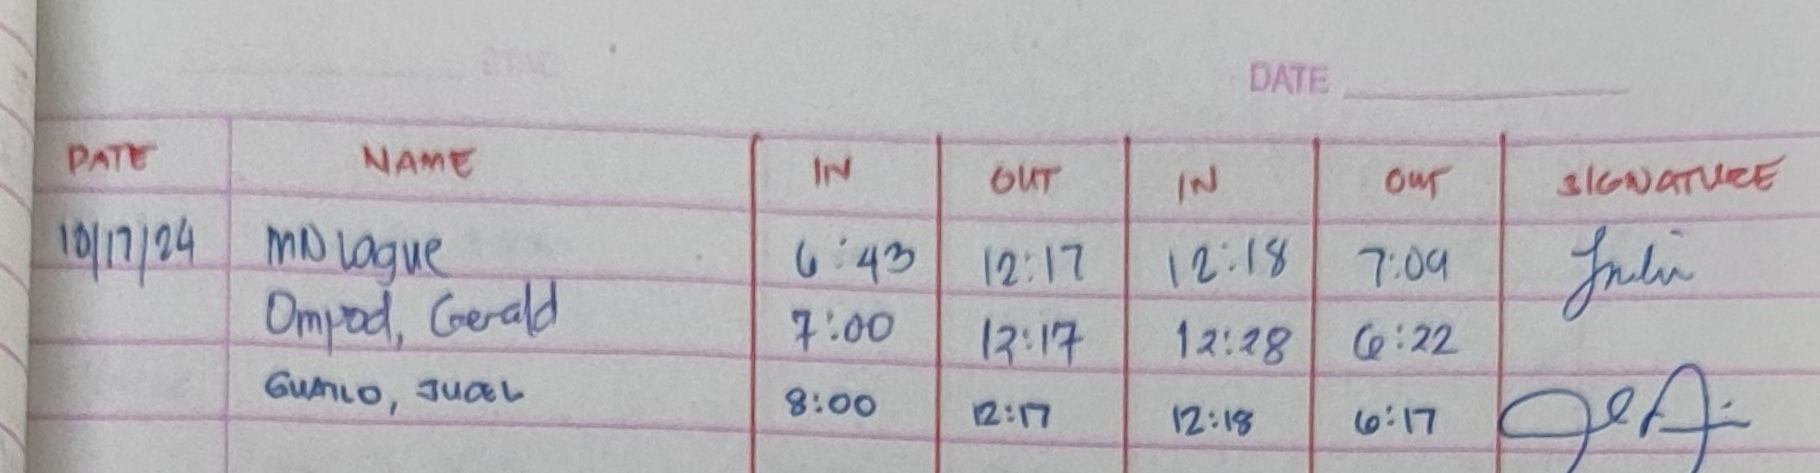 DATE
DATE NAME IN OUT IN OUT SIGNATURE
10/17/24 MNLague 6:43 12:17 12:18 7:09
Ompad, Gerald 7:00 12:17 12:28 6:22
8:00 12:17 12:18 6:17